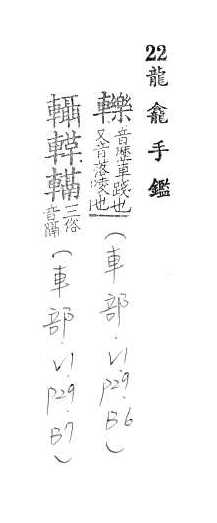 22 龍龕手鑑
轢 音歷車踐也又音落陵也(車部.V1.P29.B6)
三俗音隔(車部.V1.P29.B7)